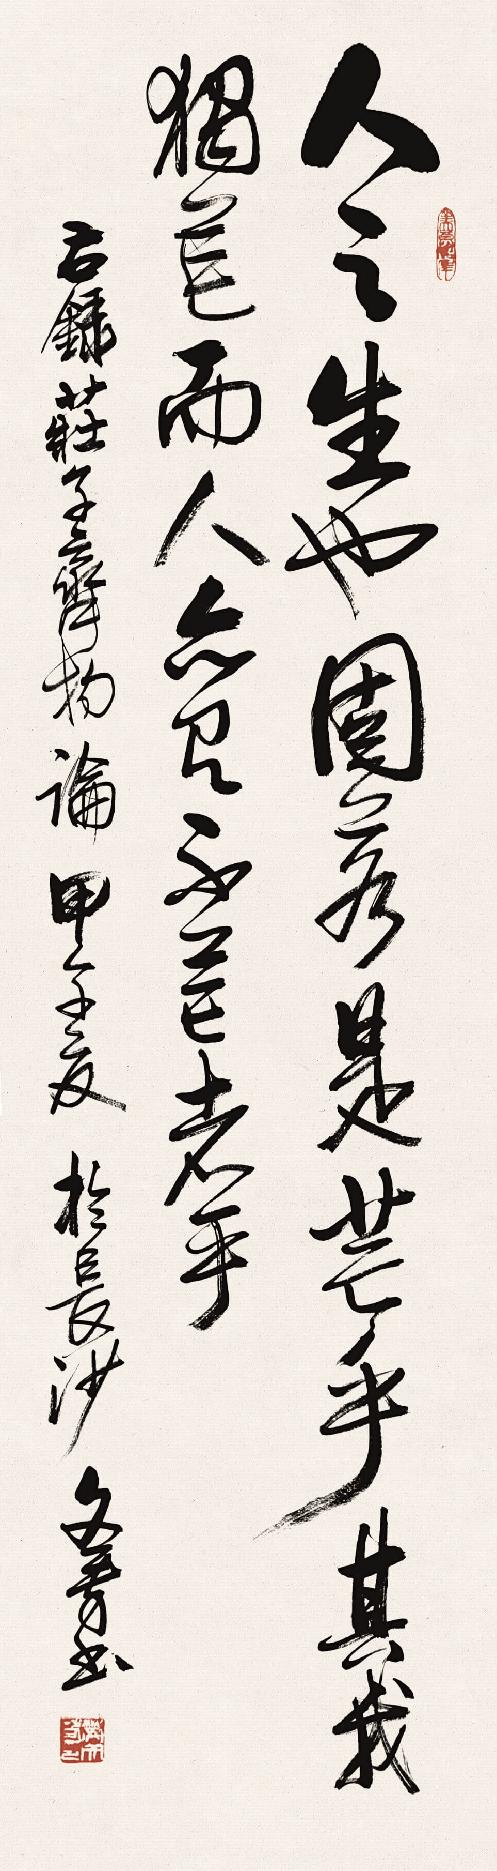 人之生也固若是芒乎其我
獨芒而人亦有不芒者乎
右錄莊子齊物論 甲午夏 於長沙 文青书